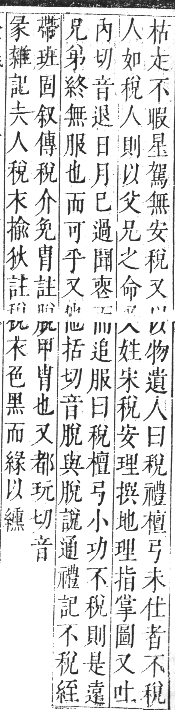 枯走不暇星駕無安稅又以物遺人曰稅禮檀弓未仕者不稅
人如稅人則以父兄之命又姓宋稅安理撰地理指掌圖又吐
內切音退日月已過聞喪而追服曰稅檀弓小功不稅則是遠
兄弟終無服也而可乎又他括切音脫與脫說通禮記不稅絰
帶班固叙傳稅介免胄註脫甲胄也又都玩切音
彖雜記夫人稅衣揄狄註稅衣色黑而緣以纁